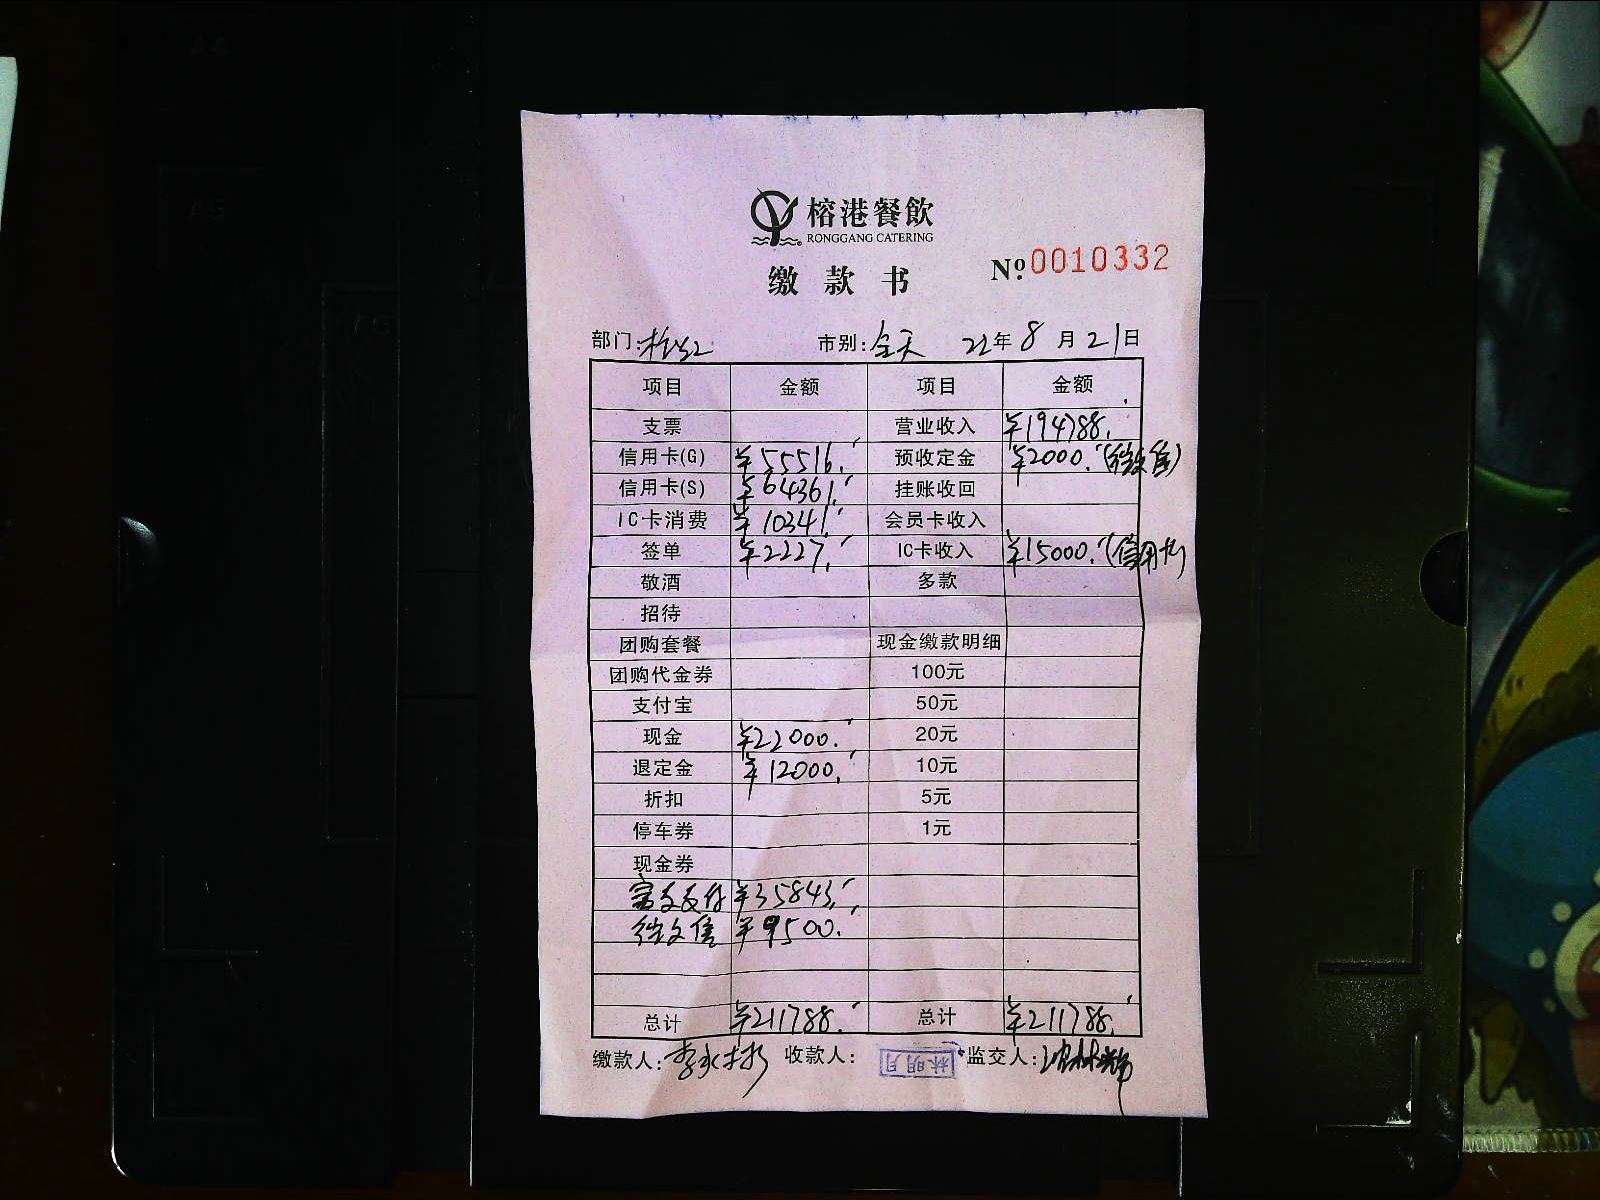 榕港餐飲
RONGGANG CATERING
缴款书 №0010332
部门: 市别:全天 22年8月21日
项目 金额 项目 金额
支票 营业收入 ¥194788.
信用卡(G) ¥55516. 预收定金 ¥2000.
信用卡(S) ¥64361. 挂账收回
IC卡消费 ¥10341. 会员卡收入
签单 ¥2227. IC卡收入 ¥15000.(信用卡)
敬酒 多款
招待
团购套餐 现金缴款明细
团购代金券 100元
支付宝 50元
现金 ¥22000. 20元
退定金 ¥12000. 10元
折扣 5元
停车券 1元
现金券
¥35843.
¥9500.
总计 ¥211788. 总计 ¥211788.
缴款人: 收款人: 林明月 监交人: